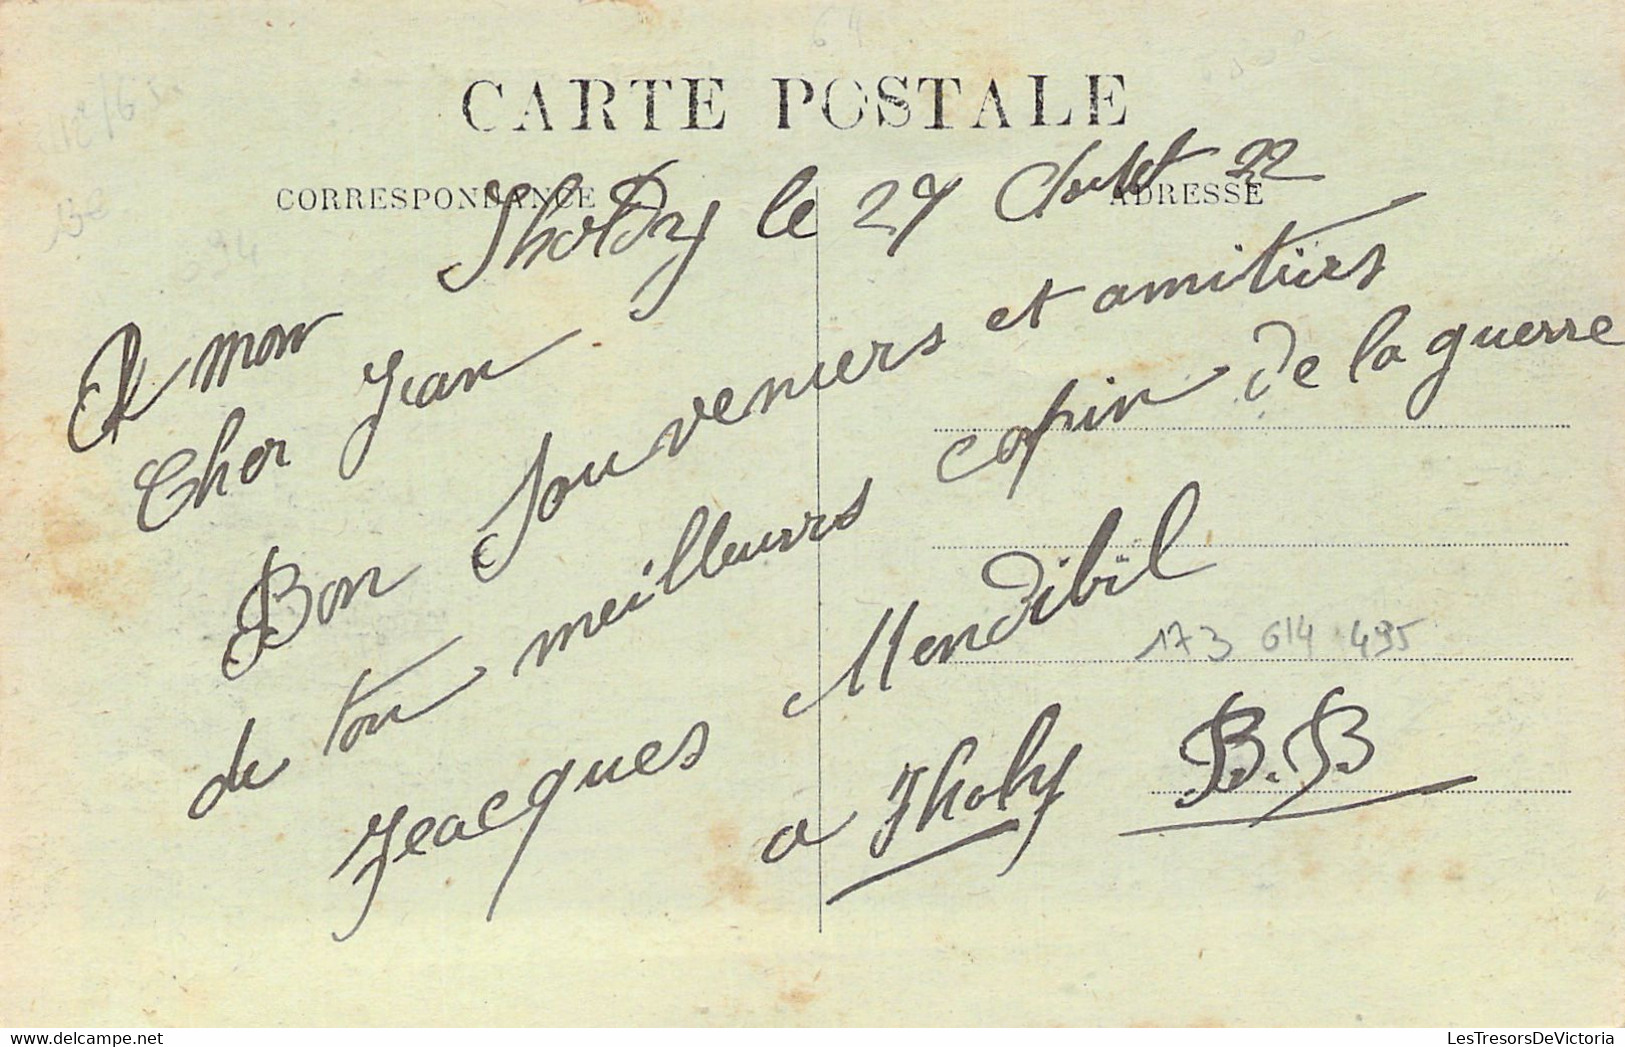 CARTE POSTALE
CORRESPONDANCE
ADRESSE
Iholdy le 27 Outet 22
A mon
Cher Jean
Bon Souveniers et amitiürs
de ton meilleurs copin de la guerre
Jeacques Mendibil
a Iholy B.B
173 614 495
64
LesTresorsDeVictoria